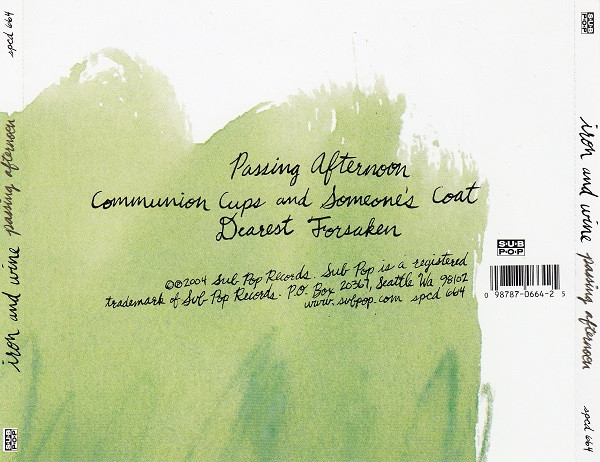 spcd 664
iron and wine passing afternoon
SUB
POP
Passing Afternoon
Communion Cups and Someone's Coat
Dearest Forsaken
℗©2004 Sub Pop Records. Sub Pop is a registered
trademark of Sub Pop Records. P.O. Box 20367, Seattle Wa 98102
www.subpop.com spcd 664
SUB
POP
0 98787-0664-2 5
SUB
POP
iron and wine passing afternoon
spcd 664